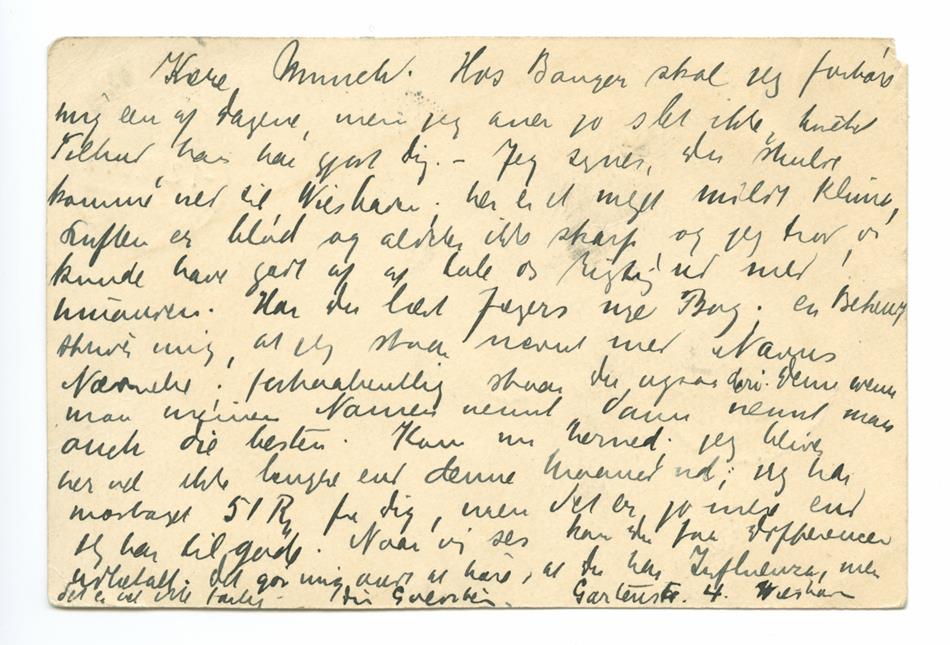 Kære Munch. Hos Banger skal jeg forhøre
mig een af Dagene, men jeg aner jo slet ikke, hvilket
Tilbud han har gjort dig. – Jeg synes, du skulde
komme ned til Wiesbaden. her er et meget mildt Klima,
Luften er blød og aldeles ikke skarp og jeg tror, vi
kunde have godt af at tale os rigtig ud med
hinanden. Har du læst Jægers nye Bog. en Bekendt
skriver mig, at jeg staar nævnt med Navns
Nævnelse; forhaabentlig staar du ogsaa deri. Denn wenn
man meinen Namen nennt, dann nennt man
auch die besten. Kom nu herned. jeg bliver
her vel ikke længre end denne Maaned ud; jeg har
modtaget 51 Rm fra dig, men det er jo mere end
jeg har til gode. Naar vi ses kan du faa Differencen
udbetalt. Det gør mig ondt at høre, at du har Influenza, men
det er vel ikke farlig. Din Goldstein. Gartenstr. 4. Wiesbaden